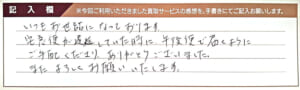 記入欄
※今回ご利用いただきました買取サービスの感想を、手書きにてご記入お願いします。
いつもお世話になっております。
宅急便が遅延していた時に、午後便で届くように
ご手配くださり、ありがとうございました。
またよろしくお願いいたします。